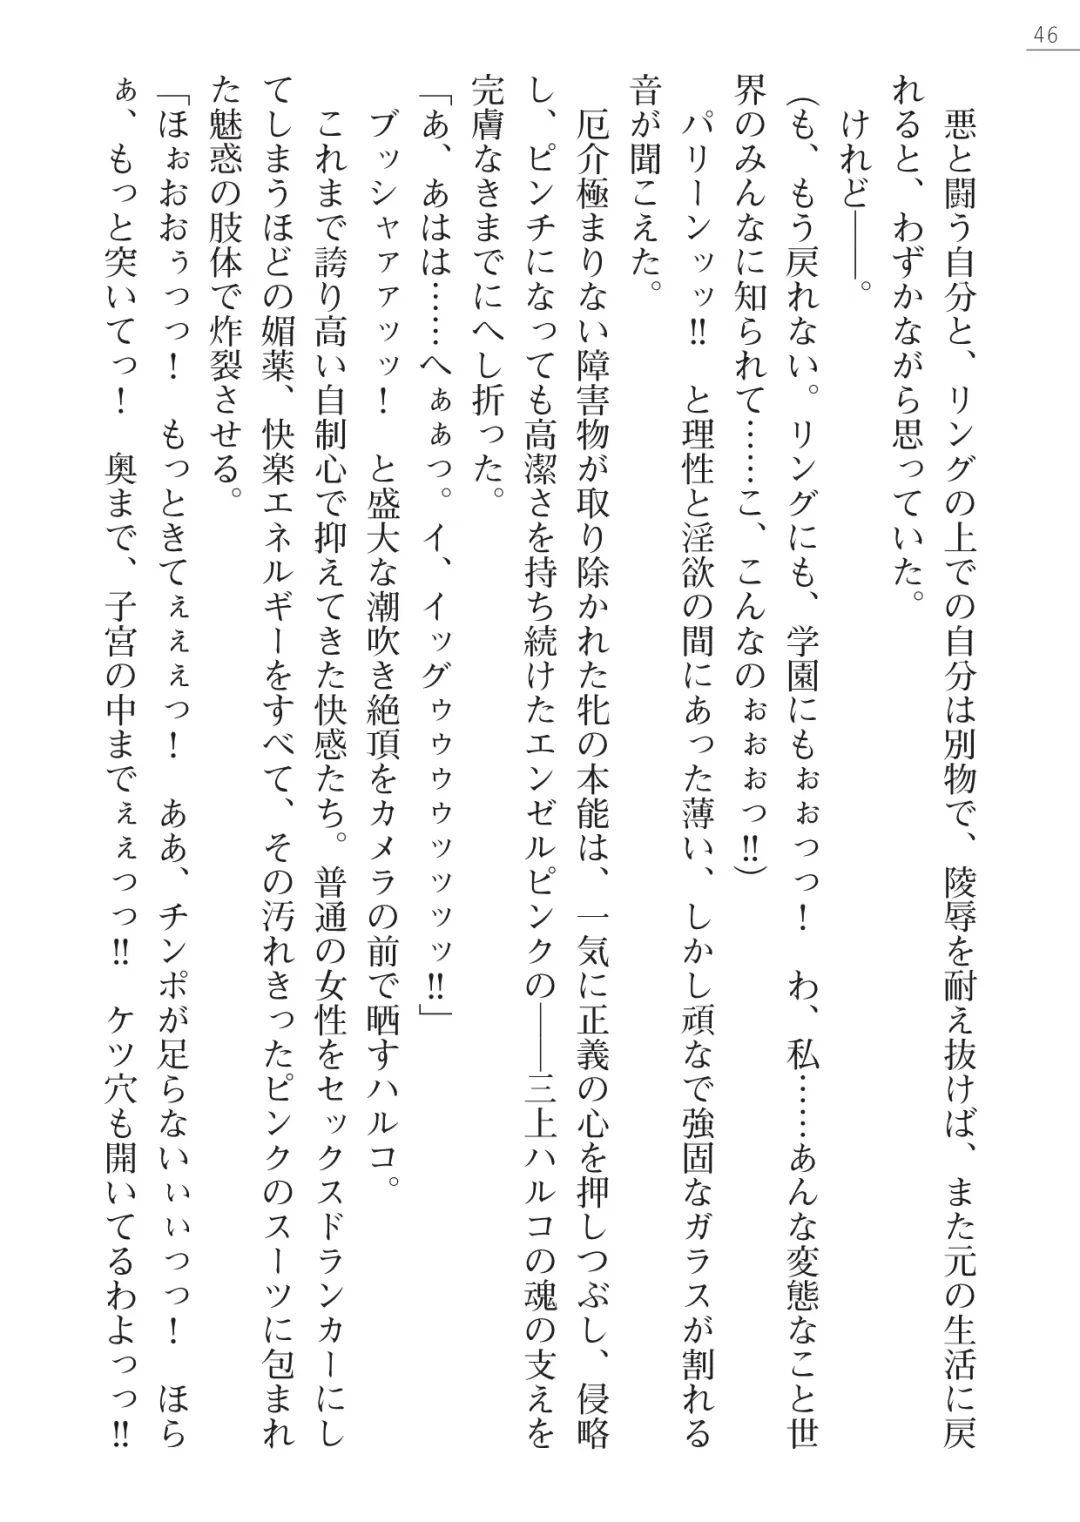 46
悪と闘う自分と、リングの上での自分は別物で、陵辱を耐え抜けば、また元の生活に戻
れると、わずかながら思っていた。
けれど――。
（も、もう戻れない。リングにも、学園にもぉぉっっ！　わ、私……あんな変態なこと世
界のみんなに知られて……こ、こんなのぉぉぉっ‼）
パリーンッッ‼　と理性と淫欲の間にあった薄い、しかし頑なで強固なガラスが割れる
音が聞こえた。
厄介極まりない障害物が取り除かれた牝の本能は、一気に正義の心を押しつぶし、侵略
し、ピンチになっても高潔さを持ち続けたエンゼルピンクの――三上ハルコの魂の支えを
完膚なきまでにへし折った。
「あ、あはは……へぁぁっ。イ、イッグゥゥゥゥッッッッ‼」
ブッシャァァッッ！　と盛大な潮吹き絶頂をカメラの前で晒すハルコ。
これまで誇り高い自制心で抑えてきた快感たち。普通の女性をセックスドランカーにし
てしまうほどの媚薬、快楽エネルギーをすべて、その汚れきったピンクのスーツに包まれ
た魅惑の肢体で炸裂させる。
「ほぉおおぅっっ！　もっときてぇぇぇっ！　ああ、チンポが足らないぃぃっっ！　ほら
ぁ、もっと突いてっ！　奥まで、子宮の中までぇぇっっ‼　ケツ穴も開いてるわよっっ‼